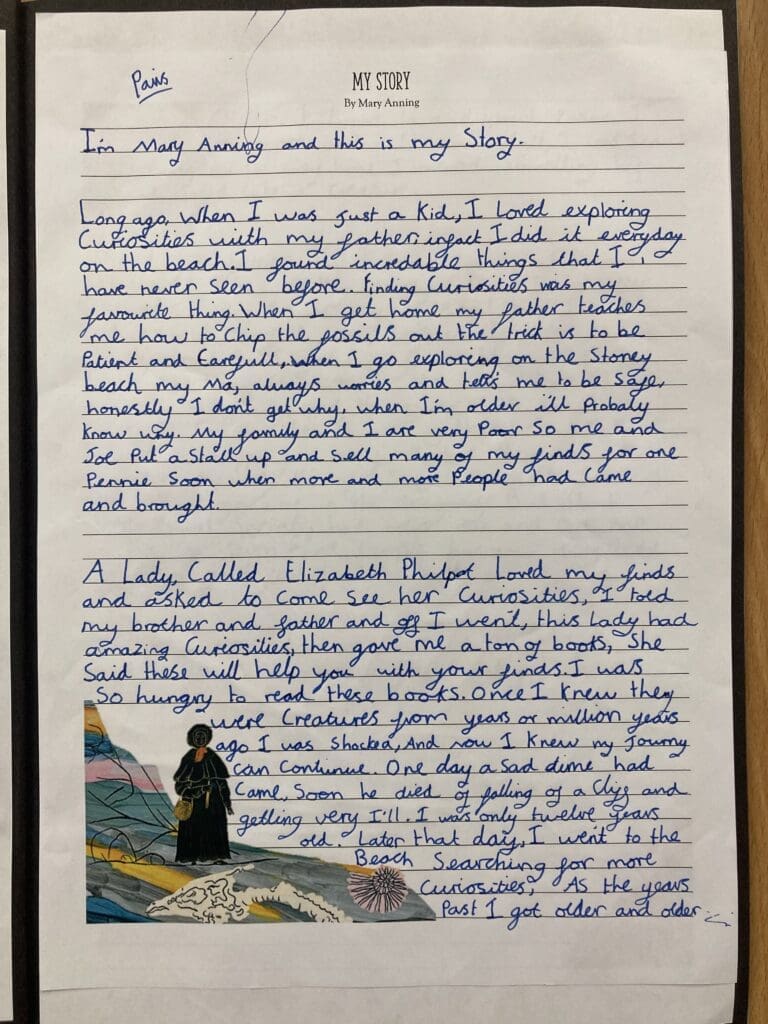 Paiis
MY STORY
By Mary Anning
I'm Mary Anning and this is my Story.
Long ago, When I was just a Kid, I Loved exploring
Curiosities with my father; infact I did it everyday
on the beach. I found incredable things that I
have never seen before. Finding Curiosities was my
favourite thing. When I get home my father teaches
me how to Chip the fossils out the trick is to be
Patient and Carefull, when I go exploring on the Stoney
beach my Ma, always worries and tells me to be safe,
honestly I don't get why, when I'm older i'll Probaly
Know why. My family and I are very Poor So me and
Joe Put a Stall up and Sell many of my finds for one
Pennie Soon when more and more People had Came
and brought.
A Lady, Called Elizabeth Philpot Loved my finds
and asked to Come See her Curiosities, I told
my brother and father and off I went, this Lady had
amazing Curiosities, then gave me a ton of books, She
Said these will help you with your finds. I was
So hungry to read these books. Once I Knew they
were Creatures from years or million years
ago I was Shocked, And now I Knew my Journy
can Continue. One day a Sad dime had
Came, Soon he died of falling of a Cliff and
getting very I'll. I was only twelve years
old. Later that day, I went to the
Beach Searching for more
Curiosities, As the years
Past I got older and older